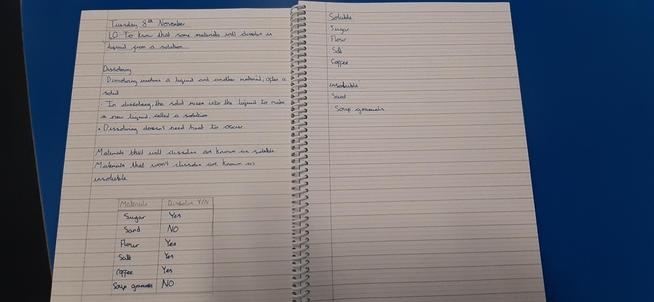 Tuesday 8th November
LO To know that some materials will dissolve in
liquid from a solution
Dissolving
Dissolving involves a liquid and another material, often a
solid
- In dissolving, the solid mixes into the liquid to make
a new liquid, called a solution
• Dissolving doesn't need heat to occur
Materials that will dissolve are known as soluble
Materials that won't dissolve are known as
insoluble
Materials Dissolve Y/N
Sugar Yes
Sand NO
Flour Yes
Salt Yes
Coffee Yes
Soup granules NO
Soluble
Sugar
Flour
Salt
Coffee
insoluble
Sand
Soup granules